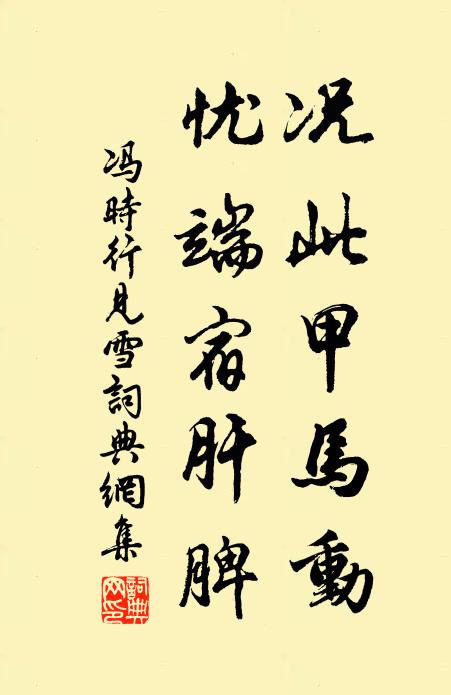 况此甲馬動
忧端宿肝脾
冯時行見雪詞典網集
詞典网印